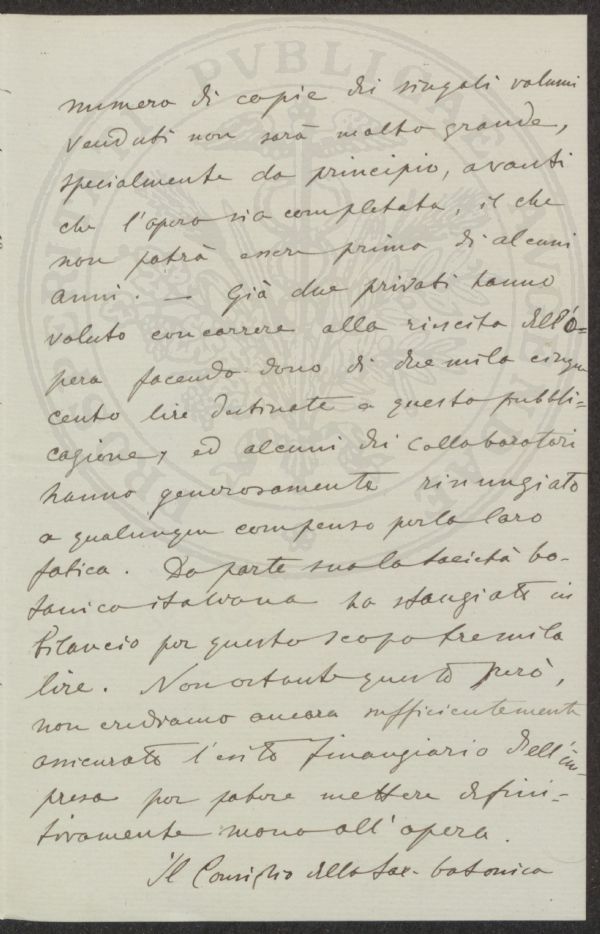 numero di copie dei singoli volumi
venduti non sarà molto grande,
specialmente da principio, avanti
che l'opera sia completata, il che
non potrà essere prima di alcuni
anni. — Già due privati hanno
voluto concorrere alla riuscita dell'o=
pera facendo dono di due mila cinque
cento lire destinate a questa pubbli=
cazione, ed alcuni dei collaboratori
hanno generosamente rinunziato
a qualunque compenso per la loro
fatica. Da parte sua la Società bo-
tanica italiana ha stanziato in
bilancio per questo scopo tremila
lire. Nonostante questo però,
non crediamo ancora sufficientemente
assicurato l'esito finanziario dell'im-
presa per potere mettere defini-
tivamente mano all'opera.
Il Consiglio della Soc. botanica